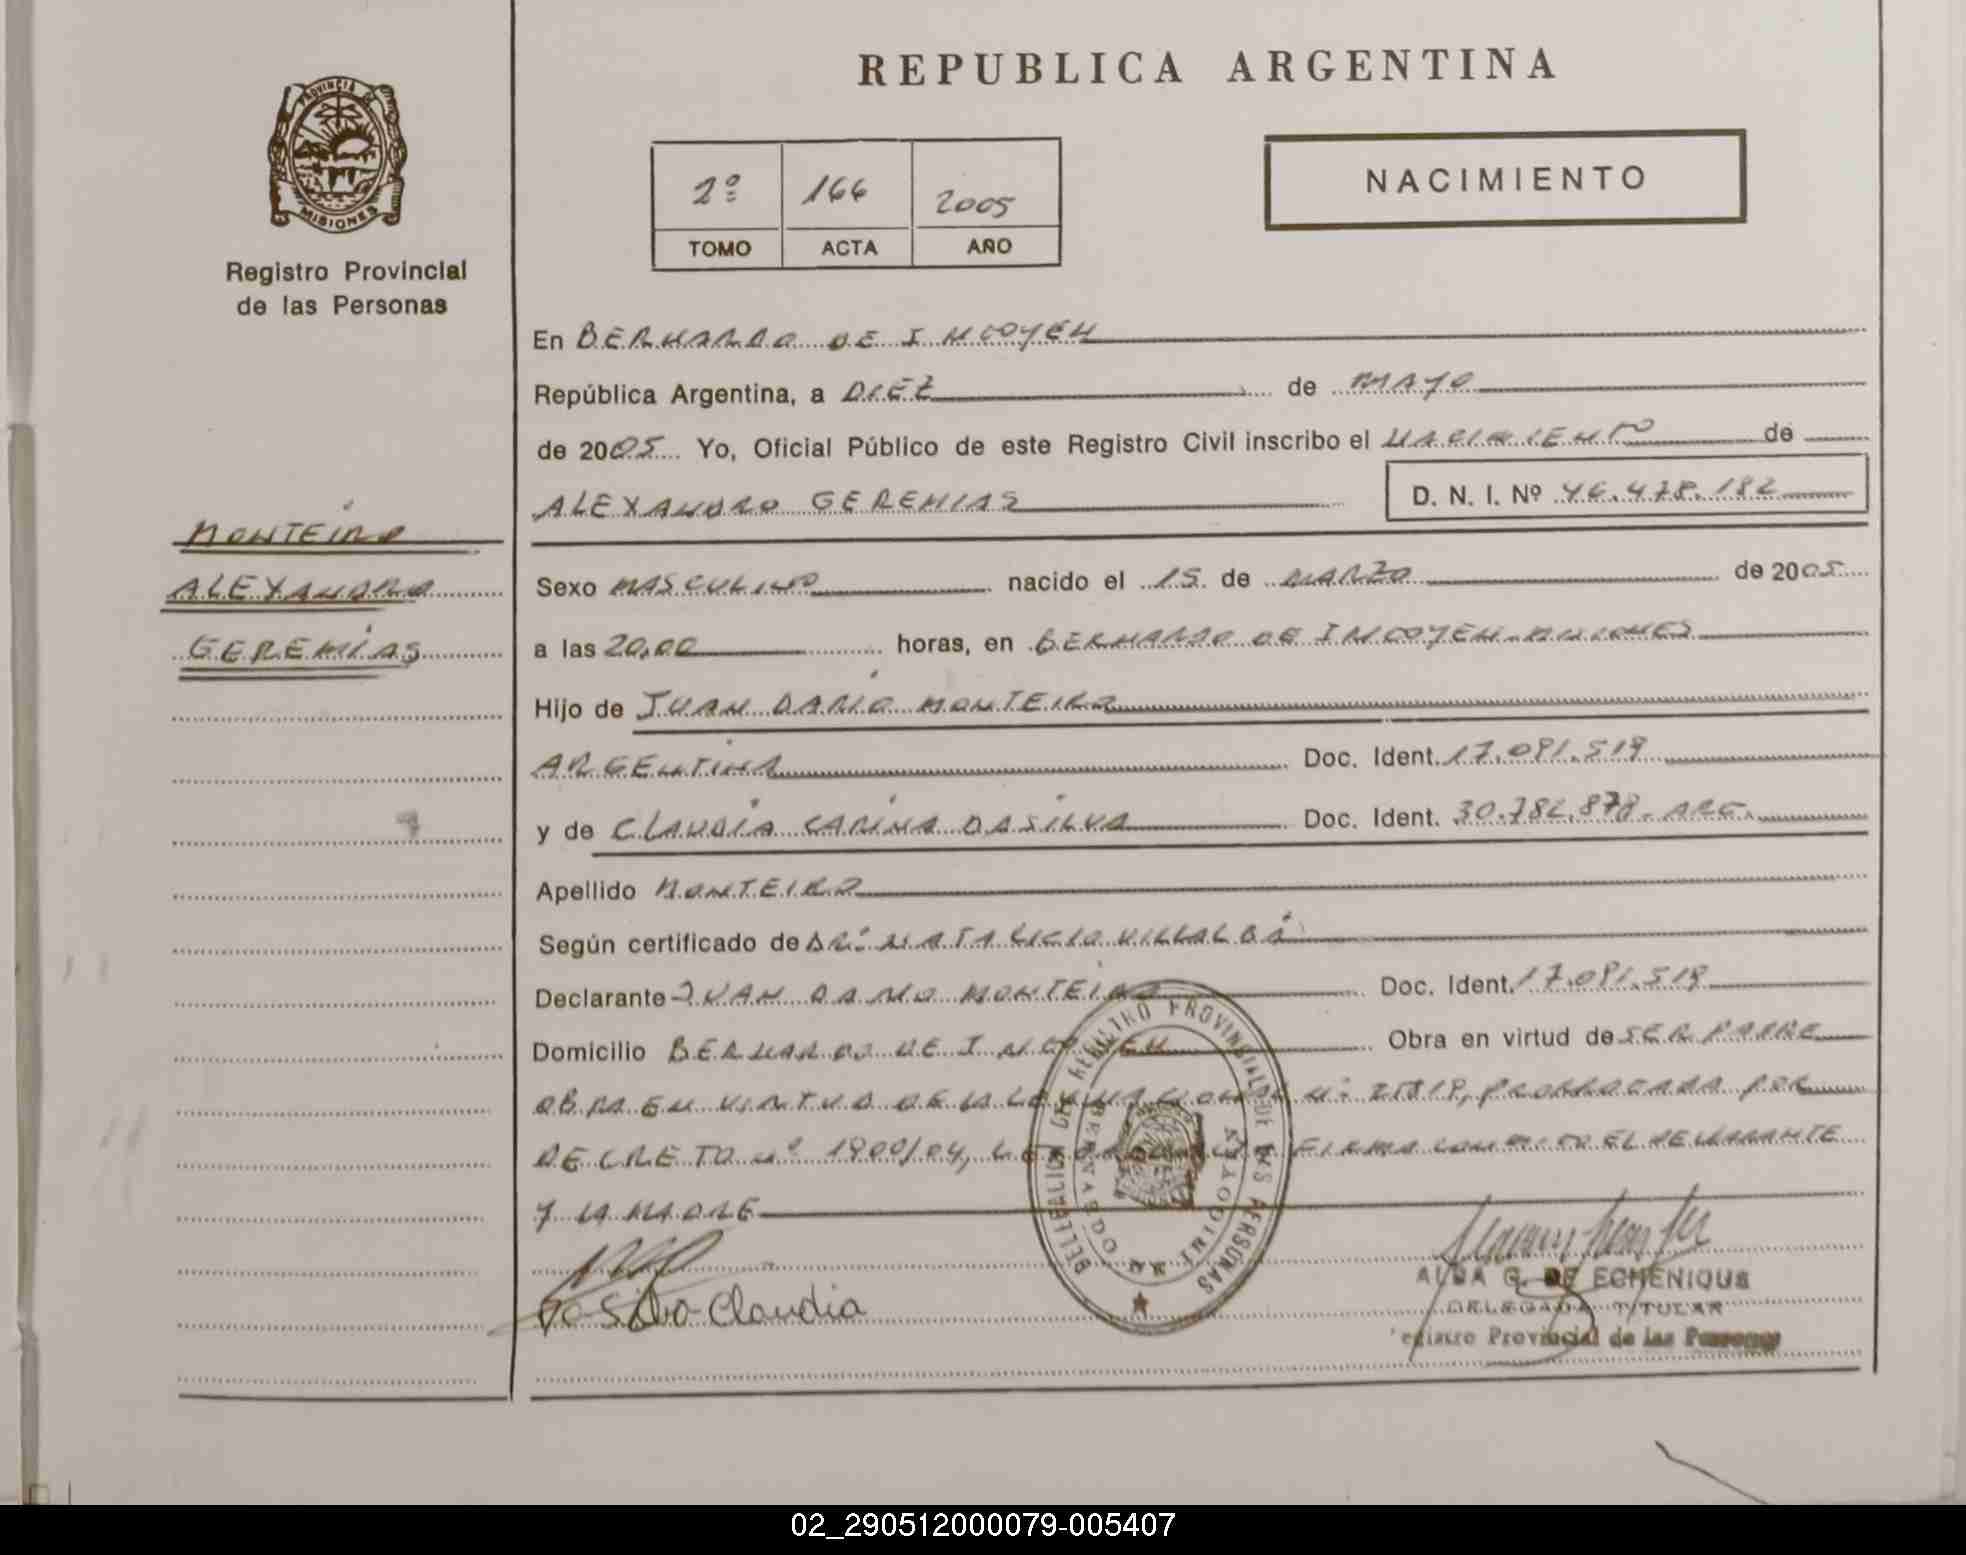 REPUBLICA ARGENTINA
PROVINCIA DE
MISIONES
Registro Provincial
de las Personas
2º 166 2005
TOMO ACTA AÑO
NACIMIENTO
MONTEIRO
ALEXANDRO
GEREMÍAS
En BERNARDO DE IRIGOYEN
República Argentina, a DIEZ de MAYO
de 2005 Yo, Oficial Público de este Registro Civil inscribo el NACIMIENTO de
ALEXANDRO GEREMIAS D. N. I. Nº 46.478.182
Sexo MASCULINO nacido el 15 de MARZO de 2005
a las 20,00 horas, en BERNARDO DE IRIGOYEN-MISIONES
Hijo de JUAN DARÍO MONTEIRO
ARGENTINA Doc. Ident. 17.091.519
y de CLAUDIA CARINA DASILVA Doc. Ident. 30.782.878- ARG.
Apellido MONTEIRO
Según certificado de DR. NATALICIO VILLALBA
Declarante JUAN DARIO MONTEIRO Doc. Ident. 17.091.519
Domicilio BERNARDO DE IRIGOYEN Obra en virtud de SER PADRE
OBRA EN VIRTUD DE LA LEY NACIONAL Nº 25819, PRORROGADA POR
DECRETO Nº 1900/04, FIRMA CONMIGO EL DECLARANTE
Y LA MADRE
DELEGACION DEL REGISTRO PROVINCIAL DE LAS PERSONAS
BERNARDO DE IRIGOYEN
Da Silva Claudia
ALBA G. DE ECHENIQUE
DELEGADA TITULAR
Registro Provincial de las Personas
02_290512000079-005407